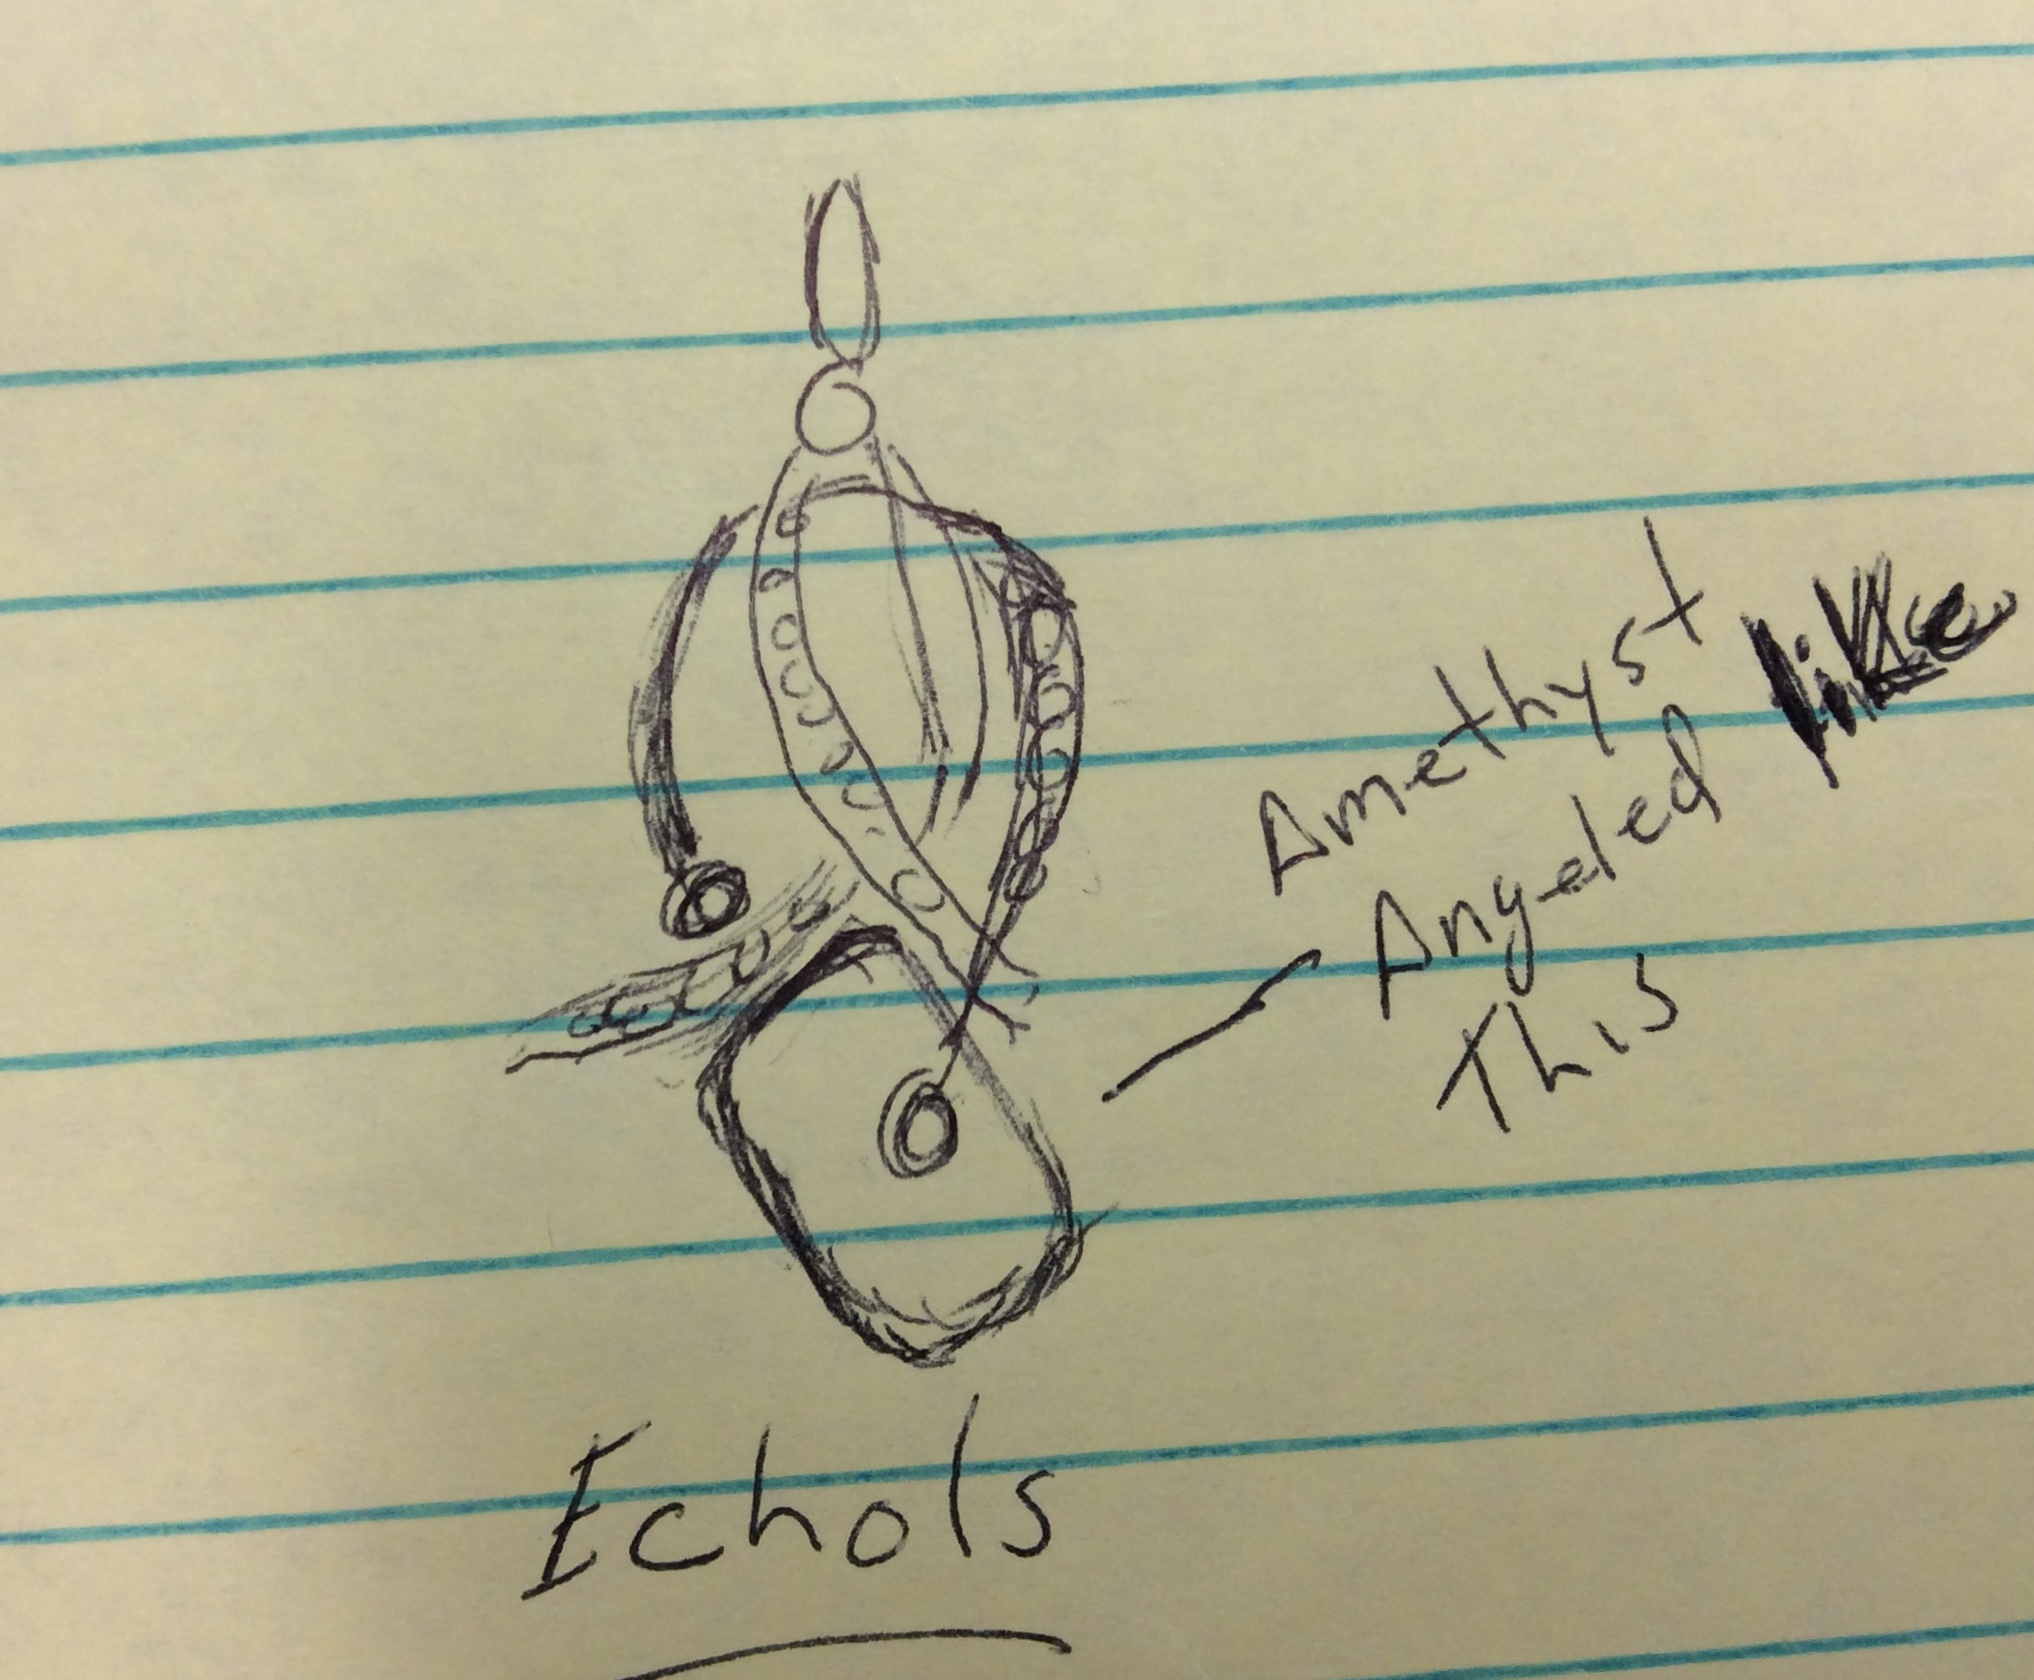 Amethyst
Angeled like
This
Echols